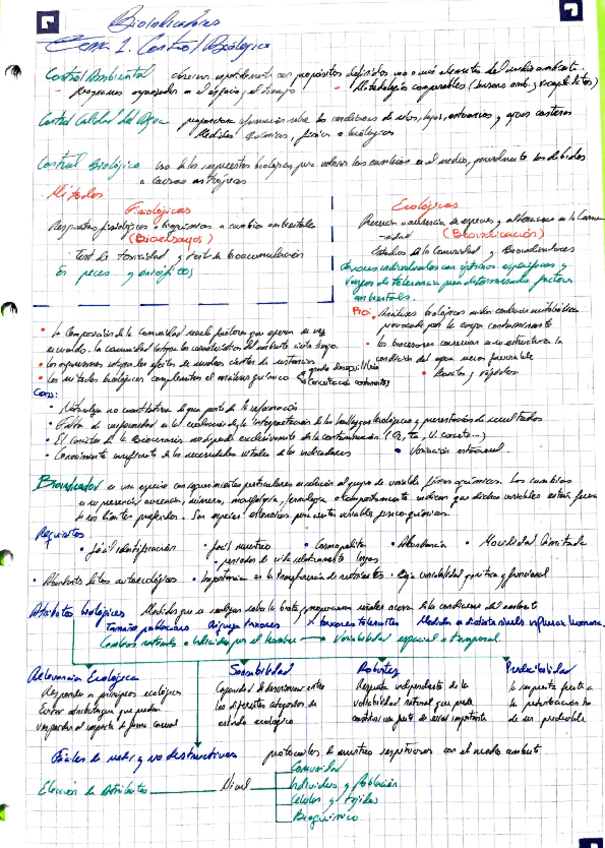 Bioindicadores
Tema 1. Control Biológico
Control Ambiental observar repetidamente con propósitos definidos uno o más elementos del medio ambiente
- programas organizados en el espacio y el tiempo - Metodologías comparables
Control Calidad del Agua proporciona información sobre las condiciones de ríos, lagos, estuarios y aguas costeras
Medidas químicas, físicas o biológicas
Control Biológico uso de las respuestas biológicas para valorar los cambios en el medio, generalmente los debidos
a causas antrópicas
Métodos
Fisiológicos
Respuestas fisiológicas o bioquímicas a cambios ambientales
(Bioensayos)
Test de toxicidad y test de bioacumulación
peces y
Ecológicos
Presencia o ausencia de especies y alteraciones en la Comu-
nidad (Bioindicación)
Estudios de la Comunidad y Bioindicadores
con óptimos específicos y
rangos de tolerancia para determinados factores
ambientales.
Pro: • Análisis biológicos miden
provocada por la carga contaminante
• los biosensores conservan en su estructura la
condición del agua
• Baratos y rápidos
• La Composición de la Comunidad
la comunidad integra las características del ambiente cierto tiempo.
• los organismos integran los efectos de muchos cientos de sustancias
• los métodos biológicos complementan el análisis químico
Concentración contaminantes
Cons:
• Naturaleza no cuantitativa de gran parte de la información
• Falta de uniformidad en la evaluación, la interpretación de los hallazgos biológicos y presentación de resultados
• El carácter de la Biocenosis no depende exclusivamente de la contaminación
• Conocimiento insuficiente de las necesidades vitales de los indicadores • Variación estacional
Bioindicador es una especie con requerimientos particulares en relación al grupo de variables físicas o químicas. Los cambios
en su presencia/ausencia, número, morfología, fisiología o comportamiento indican que dichas variables están fuera
de sus límites preferidos. Son especies para ciertas variables fisicoquímicas.
Requisitos
• fácil identificación • fácil muestreo • Cosmopolita • Abundancia • Movilidad limitada
- periodos de vida relativamente largos
• Abundantes datos autoecológicos • Importancia en la transferencia de nutrientes • Baja variabilidad genética y funcional
Atributos biológicos Medidas que se realizan sobre la biota y proporcionan señales acerca de la condición del ambiente
Tamaño poblaciones taxones taxones tolerantes Medidas en distintos niveles
Cambios naturales o inducidos por el hombre → Variabilidad espacial o temporal
Relevancia Ecológica
Responder a principios ecológicos
Evitar que puedan
responder al impacto de forma casual
Sensibilidad
Capacidad de discriminar entre
las diferentes categorías de
estado ecológico
Robustez
Respuesta independiente de la
variabilidad natural que puede
constituir una fuente de error importante
Predictibilidad
la respuesta frente a
la perturbación ha
de ser predecible
Fáciles de medir y no destructivos protocolos de muestreo respetuosos con el medio ambiente
Elección de Atributos Nivel
Comunidad
Individuos y Población
Células y tejidos
Bioquímico